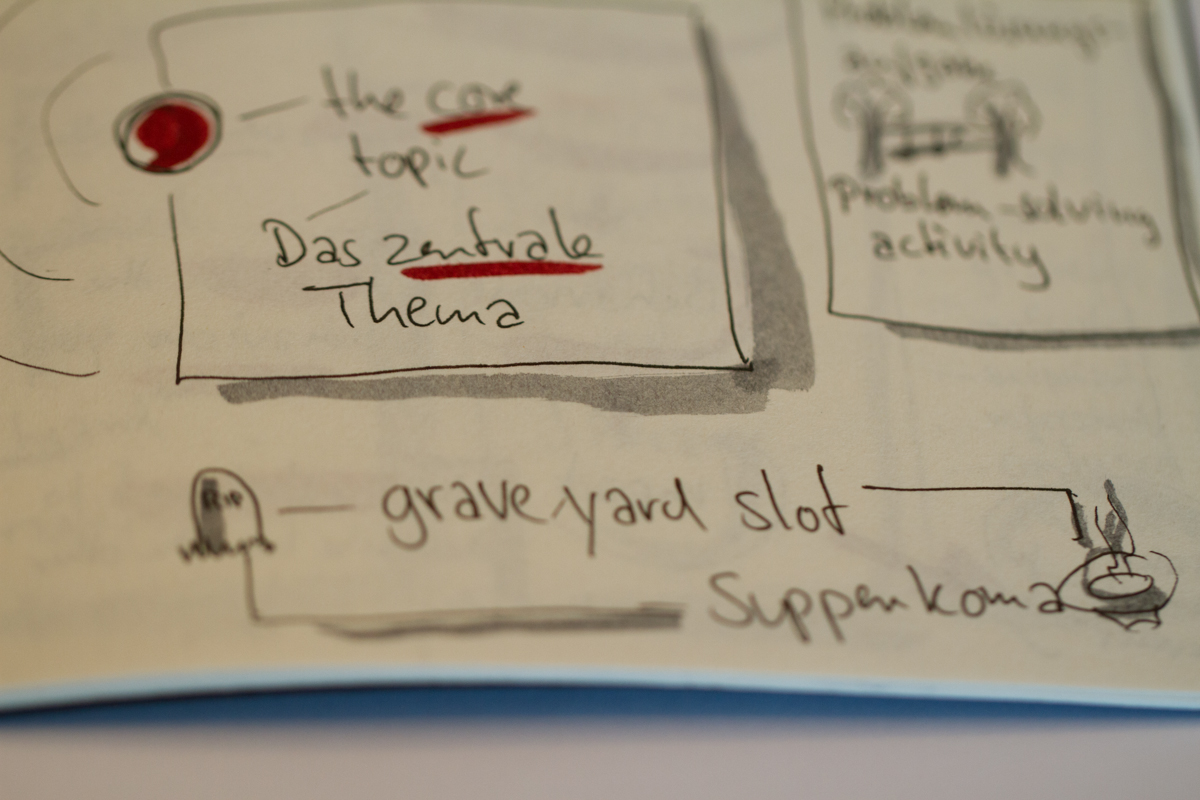 the core
topic
Das zentrale
Thema
aufgabe
problem-solving
activity
RIP
graveyard slot
Suppenkoma